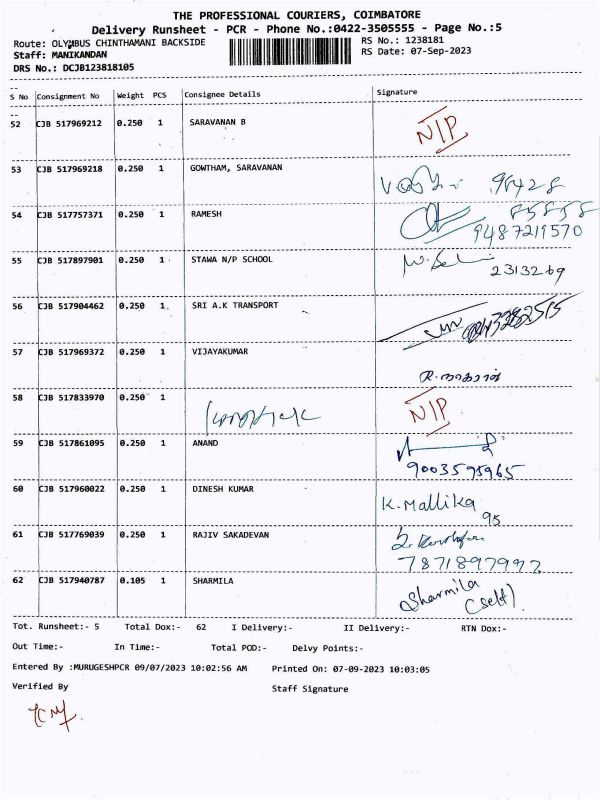 THE PROFESSIONAL COURIERS, COIMBATORE
Delivery Runsheet - PCR - Phone No.:0422-3505555 - Page No.:5
Route: OLYMBUS CHINTHAMANI BACKSIDE RS No.: 1238181
Staff: MANIKANDAN RS Date: 07-Sep-2023
DRS No.: DCJB123818105
S No Consignment No Weight PCS Consignee Details Signature
52 CJB 517969212 0.250 1 SARAVANAN B N/P
53 CJB 517969218 0.250 1 GOWTHAM, SARAVANAN 96428
85858
54 CJB 517757371 0.250 1 RAMESH 9487219570
55 CJB 517897901 0.250 1 STAWA N/P SCHOOL 2313269
56 CJB 517904462 0.250 1 SRI A.K TRANSPORT
57 CJB 517969372 0.250 1 VIJAYAKUMAR
58 CJB 517833970 0.250 1 N/P
59 CJB 517861095 0.250 1 ANAND
9003595965
60 CJB 517960022 0.250 1 DINESH KUMAR K. Mallika
95
61 CJB 517769039 0.250 1 RAJIV SAKADEVAN
7871897997
62 CJB 517940787 0.105 1 SHARMILA Sharmila
(self)
Tot. Runsheet:- 5 Total Dox:- 62 I Delivery:- II Delivery:- RTN Dox:-
Out Time:- In Time:- Total POD:- Delvy Points:-
Entered By :MURUGESHPCR 09/07/2023 10:02:56 AM Printed On: 07-09-2023 10:03:05
Verified By Staff Signature